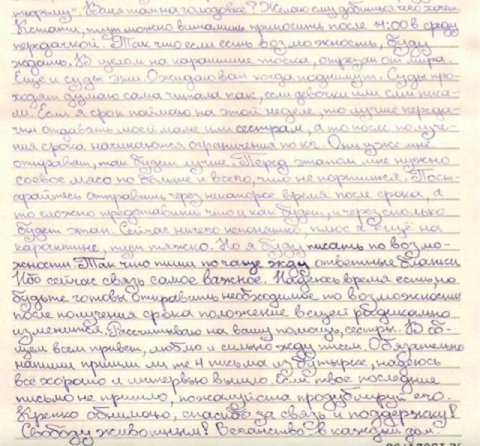 тюрьму". Ваня там на голодовке? Желаю ему добиться чего хочет.
Кстати, тут можно витамины приносить после 14:00 в среду
передачкой. Так что если есть возможность, буду
ждать. В целом на карантине тоска, отрезан от мира.
Ещё и суды эти. Ожидаловом когда поднимут. Суды про-
ходят думаю сама читала как, если девочки или сми писа-
ли. Если я срок поймаю на этой неделе, то лучше переда-
чки отдавать моей маме или сестрам, а то после получе-
ния срока начинаются ограничения по кг. Они уже мне
отправят, так будет лучше. Перед этапом мне нужно
соевое мясо по больше и всего, что не портится. Поста-
райтесь отправить через некоторое время после срока, а
то сложно представить что и как будет, и через сколько
будет этап. Сейчас ничего непонятно, плюс я ещё на
карантине, тут тяжко. Но я буду писать по возмо-
жности. Так что пиши почаще жду ответные бланки
Ибо сейчас связь самое важное. Надеюсь время есть, но
будьте готовы отправить необходимое по возможности
после получения срока положение вещей радикально
изменится. Рассчитываю на вашу помощь, сестры. В об-
щем всем привет, люблю и сильно жду писем. Обязательно
напиши пришли ли те 4 письма из бутырке, надеюсь
всё хорошо и интервью вышло. Если твое последние
письмо не пришло, пожалуйста продублируй его.
Крепко обнимаю, спасибо за связь и поддержку!
Свободу животным! Веганство в каждый дом.